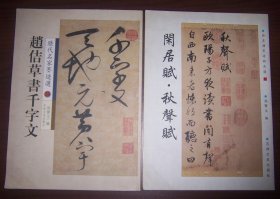 歷代名家墨跡選
趙佶草書千字文
千字文
天地元黃宇
閑居賦·秋聲賦
秋聲賦
歐陽子方夜讀書聞有聲
自西南来者悚然而聽之曰